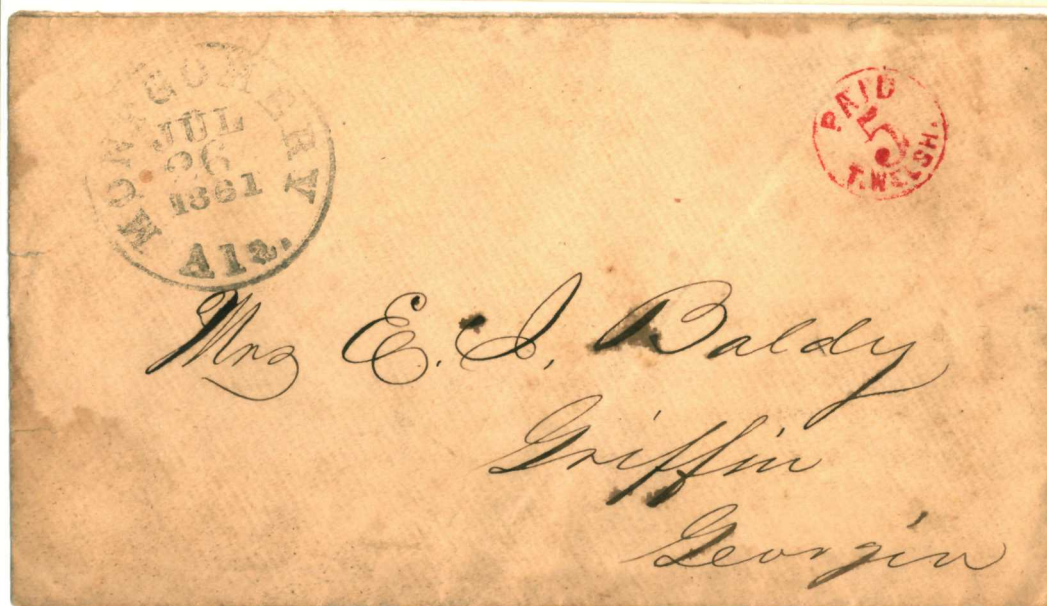 MONTGOMERY
JUL
26
1861
Ala.
PAID
5
T. WELSH.
Mrs E. J. Baldy
Griffin
Georgia